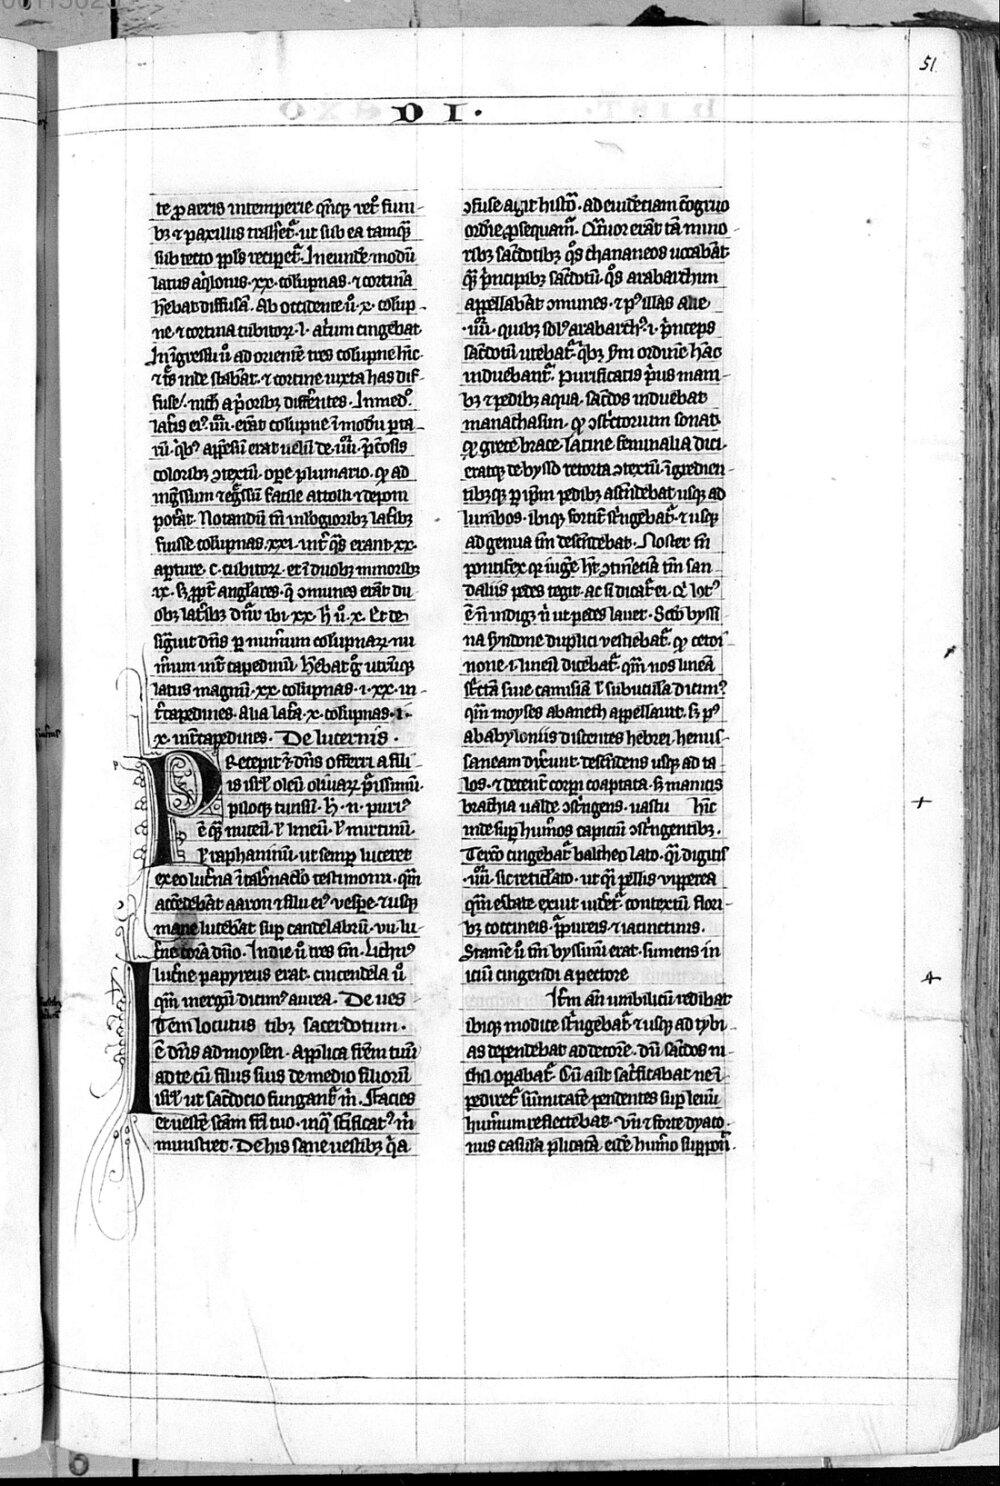 51
DI.
te ꝓ aeris intemperie qn̄cꝫ ret̾ funi-
bꝫ ⁊ paxillis trahet̾. ut sub ea tamqͣ
sub tecto ppl̄s reciꝑet̾. In eundē modū
latus aq̇lonis .xx. colūpnas ⁊ cortinā
hēbat diffusā. Ab occidente ū̊ .x. colūp-
ne ⁊ cortina cubitoꝝ .l. atͥum cingebat.
In īgressu ū̊ ad orientē tres colūpne hīc
⁊ tͤs inde stabāt. ⁊ cortine iuxta has dif-
fuse. nich̄ a pͥoribꝫ differētes. In medio
latͥis eiꝰ .iiii. erāt colūpne ī modū porta-
rū. qͥbꝰ appēsū erat uelū de .iiii. p̄ciosis
coloribꝫ ꝯtextū. opere plumario. qđ ad
ingͤssum ⁊ egͤssū facile attolli ⁊ deponi
poterat. Notandū tn̄ in lōgioribꝫ latͥibꝫ
fuisse colūpnas .xxi. int̾ qͣs erant .xx.
aperture .c. cubitoꝝ. et ī duobꝫ minoribꝫ
.ix. sꝫ ppt̾ anglares. q̄ ꝯmunes erāt du
obꝫ latͥibꝫ dn̄r ibi .xx. h̄ ū̊ .x. Et de
signit dn̄s ꝑ numerum colūpnaꝝ nu
merum int̾capedinū. Hēbat gͦ utrūqꝫ
latus magnū .xx. colūpnas .i. xx. in-
t̾capedines. Alia lat̾a .x. colūpnas .i.
x. int̾capedines. De lucernis.
Precepit ⁊ dn̄s offerri a fili
is isrl̄ oleū oliuaꝝ pͥissimū.
piloqꝫ tunsū. h̄. n. puriꝰ
ē qͣꝫ nuceū. ł lineū. ł mirtinū.
ł raphaninū. ut semꝑ luceret
ex eo luc̾na ī tabn̄aclo testimonii. qm̄
accēdebāt aaron ⁊ filii eiꝰ uesꝑe ⁊ usqꝫ
mane lucebat suꝑ candelabrū .vii. lu-
c̾ne corā dn̄o. In die ū̊ tres tm̄. Lichnꝰ
luc̾ne papyreus erat. cincendela ū̊
qm̄ mergū dicimꝰ aurea. De ues
Item locutus tibꝫ sacerdotum.
ē dn̄s ad moysen. Applica frēm tuū
ad te cū filiis suis de medio filiorū
isrl̄ ut sac̾docio fungant̾ m̄. Facies
et uestē sc̄am frī tuo. inqͦ sc̄ificatꝰ m̄
ministret. De his sane uestibꝫ qͥa
ꝯfuse agit histoͥ. ad euidētiam ꝯgruo
ordīe ꝓsequar̄. Qͣtuor erāt tā mino
ribꝫ sac̾dotibꝫ qͦs chananeos uocabāt
qͣꝫ pͥncipibꝫ sac̾dotū. qͦs arabarchim
appellabāt ꝯmunes. ⁊ pͭ illas alie
.iiii. quibꝫ solꝰ arabarchꝰ .i. pͥnceps
sac̾dotū utebat̾. qͥbꝫ ħm ordinē hāc
induebant̾. Purificatis pͥus mani
bꝫ ⁊ pedibꝫ aqua. sac̾dos induebat
manachasim. qđ ꝯstͥctorium sonat.
qđ grece brace. latine feminalia dici.
eratqꝫ de bysso retorta ꝯtextū. ī gredien-
tibꝫqꝫ ꝑ ip̄m pedibꝫ ascēdebat usqꝫ ad
lumbos. ibiqꝫ fortit̾ stͥngebat̾. ⁊ usqꝫ
ad genua tm̄ descēdebat. Noster n̄
pontifex qꝛ iūgē hꝫ ꝯtinēcia tm̄ san
daliis pedes tegit. ac si dicat̾ ei. qͥ lotꝰ
ē n̄ indigꝫ nͥ ut pedes lauet. Scd̄o byssi
na syndone duplici uestiebat̾. qđ cetoi
none .i. lineū dicebat̾. qm̄ nos lineā
stͥctā siue camisiā ł subuculā dicimꝰ
qm̄ moyses abaneth appellauit. sꝫ pͭ
a babyloniis discentes hebrei henus-
saneam dix̾unt. descēdens usqꝫ ad ta
los. ⁊ decent̾ corpi coaptata. sꝫ manicis
brachia ualde ꝯstͥngens. uastū hn̄s
inde suꝑ hum̾os capiciū ꝯstͥngentibꝫ.
Tercio cingebat̾ baltheo lato. qͣꝫ digitis
.iiii. sic reticlato. ut qͥ pellis uipperea
qm̄ estate exuit uidet̾. contextū flori-
bꝫ coccineis. ppureis ⁊ iacinctinis.
Stamē ū̊ tm̄ byssinū erat. sumens in
iciū cingendi a pectore
It̾m an̄ umbilicū redibat
ibiqꝫ modice stͥngebat̾ ⁊ usqꝫ ad tybi-
as dependebat ad decorē. dū sac̾dos ni-
chil oꝑabat̾. Cū aūt sac̾ficabat ne ī-
pediret̾ sūmitates pendentes suꝑ leuū
hum̾um reflectebat. Vn̄ ⁊ forte dyaco-
nus casula plicatā. eidē hum̾o suppon̄.